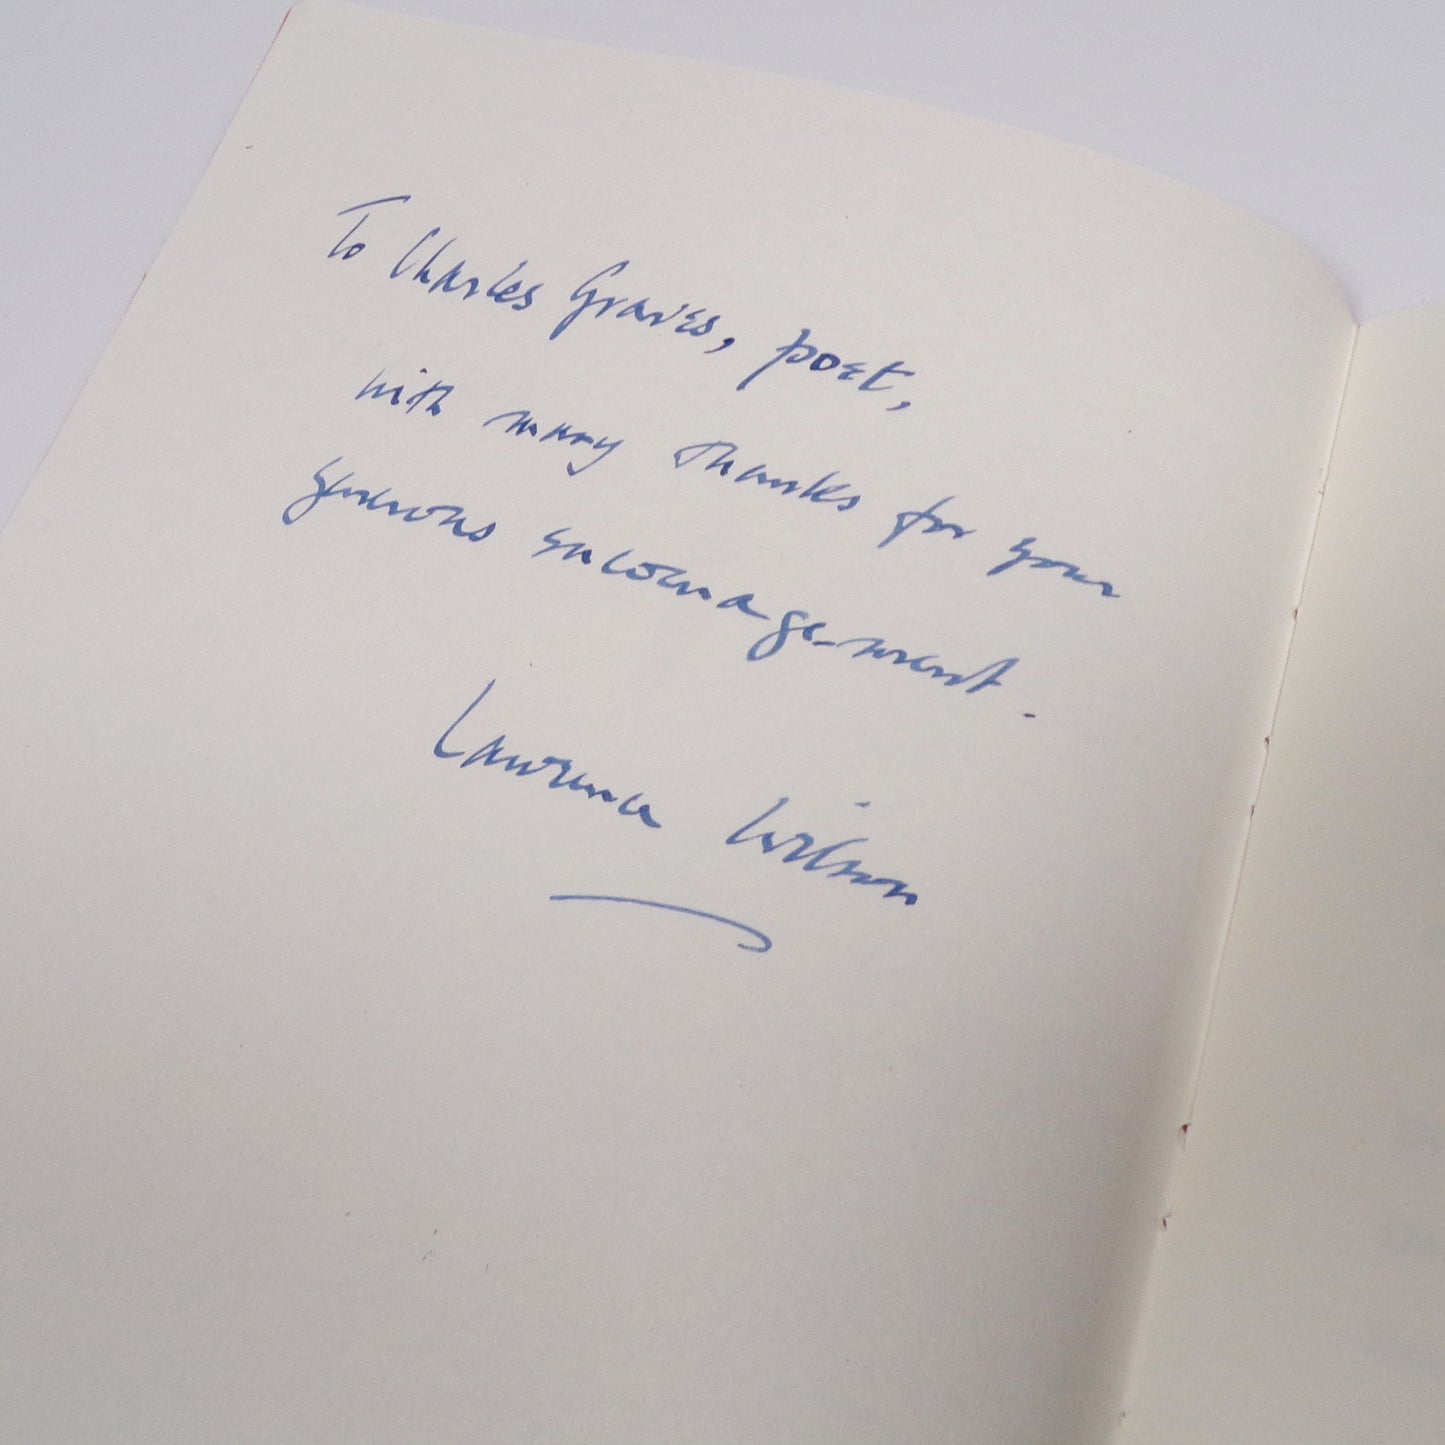 To Charles Graves, poet,
with many thanks for your
generous encouragement.
Lawrence Wilson